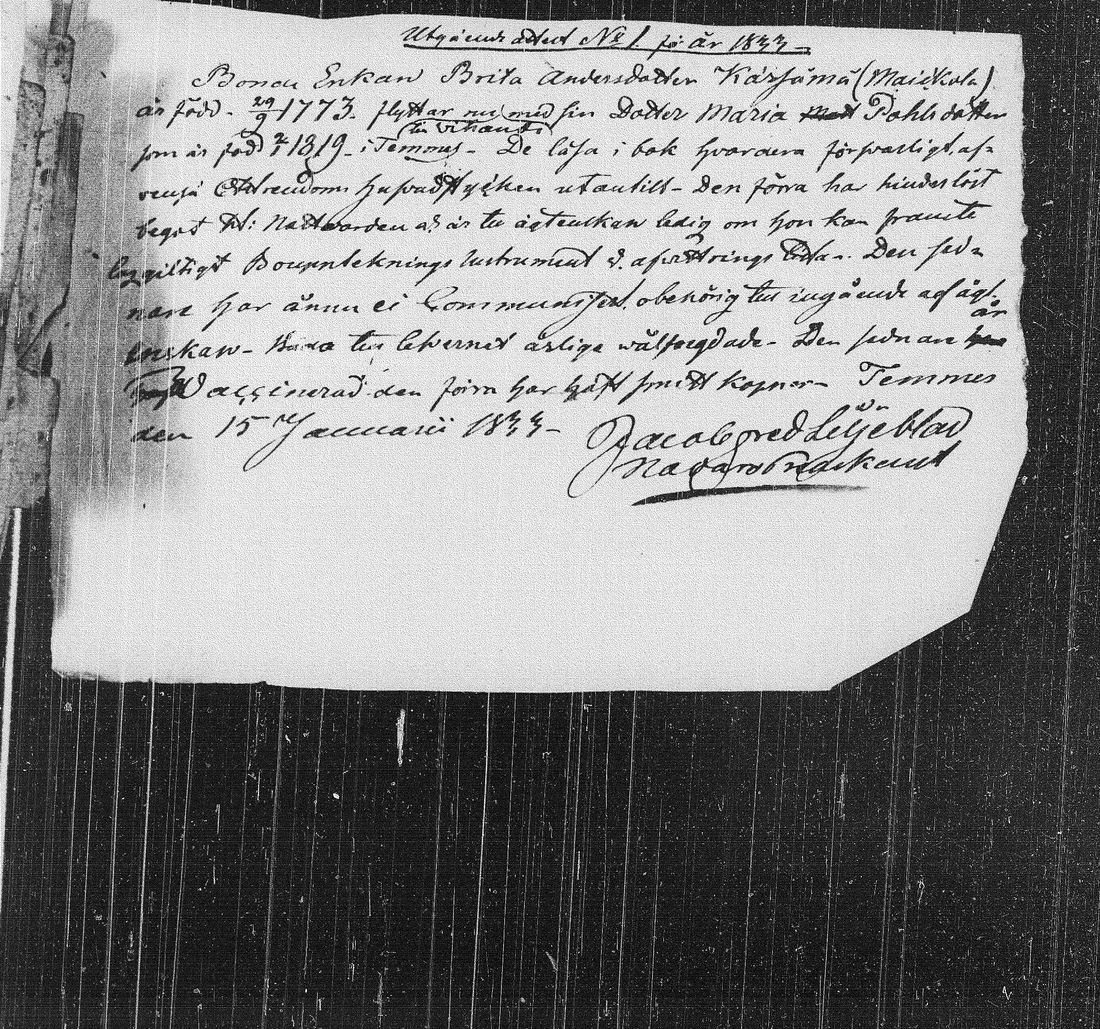 Utgående attest No 1. för år 1833
Bonde Enkan Brita Andersdotter Kärsämä (Maickola)
är född 29/9 1773. flyttar nu med sin Dotter Maria Pahlsdotter
till Wihanti
som är föd 1819 i Temmes. De läsa i bok hvardera försvarligt, af
Christendoms hufvudstycken utantill. Den förra har hinderlöst
begåt H: Nattvarden och är till ägtenskap ledig om hon kan framte
laggiltigt Bouptecknings Instrument och afvittrings Den sed-
nare har ännu ei Communiserat, obehörig till ingående af ägt-
enskap. Båda till lefvernet ärliga välfrägdade. Den sednare är
Vaccinerad den förra har haft smittkoppor. Temmes
den 15 Januarii 1833
Jacob Fred Liljeblad